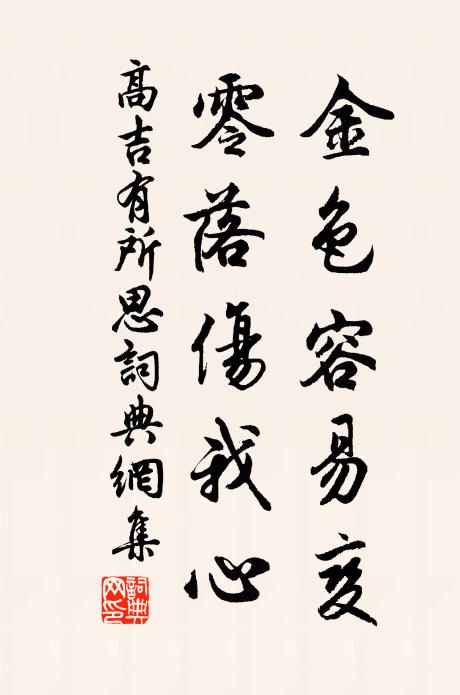 金色容易變
零落傷我心
高吉有所思詞典網集
詞典
网印